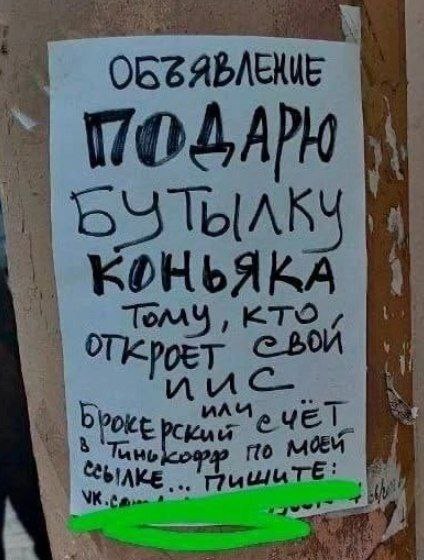 ОБЪЯВЛЕНИЕ
ПОДАРЮ
БУТЫЛКУ
КОНЬЯКА
ТОМУ, КТО
ОТКРОЕТ СВОЙ
ИИС
ИЛИ
БРОКЕРСКИЙ СЧЁТ
В ТИНЬКОФФ ПО МОЕЙ
ССЫЛКЕ... ПИШИТЕ: